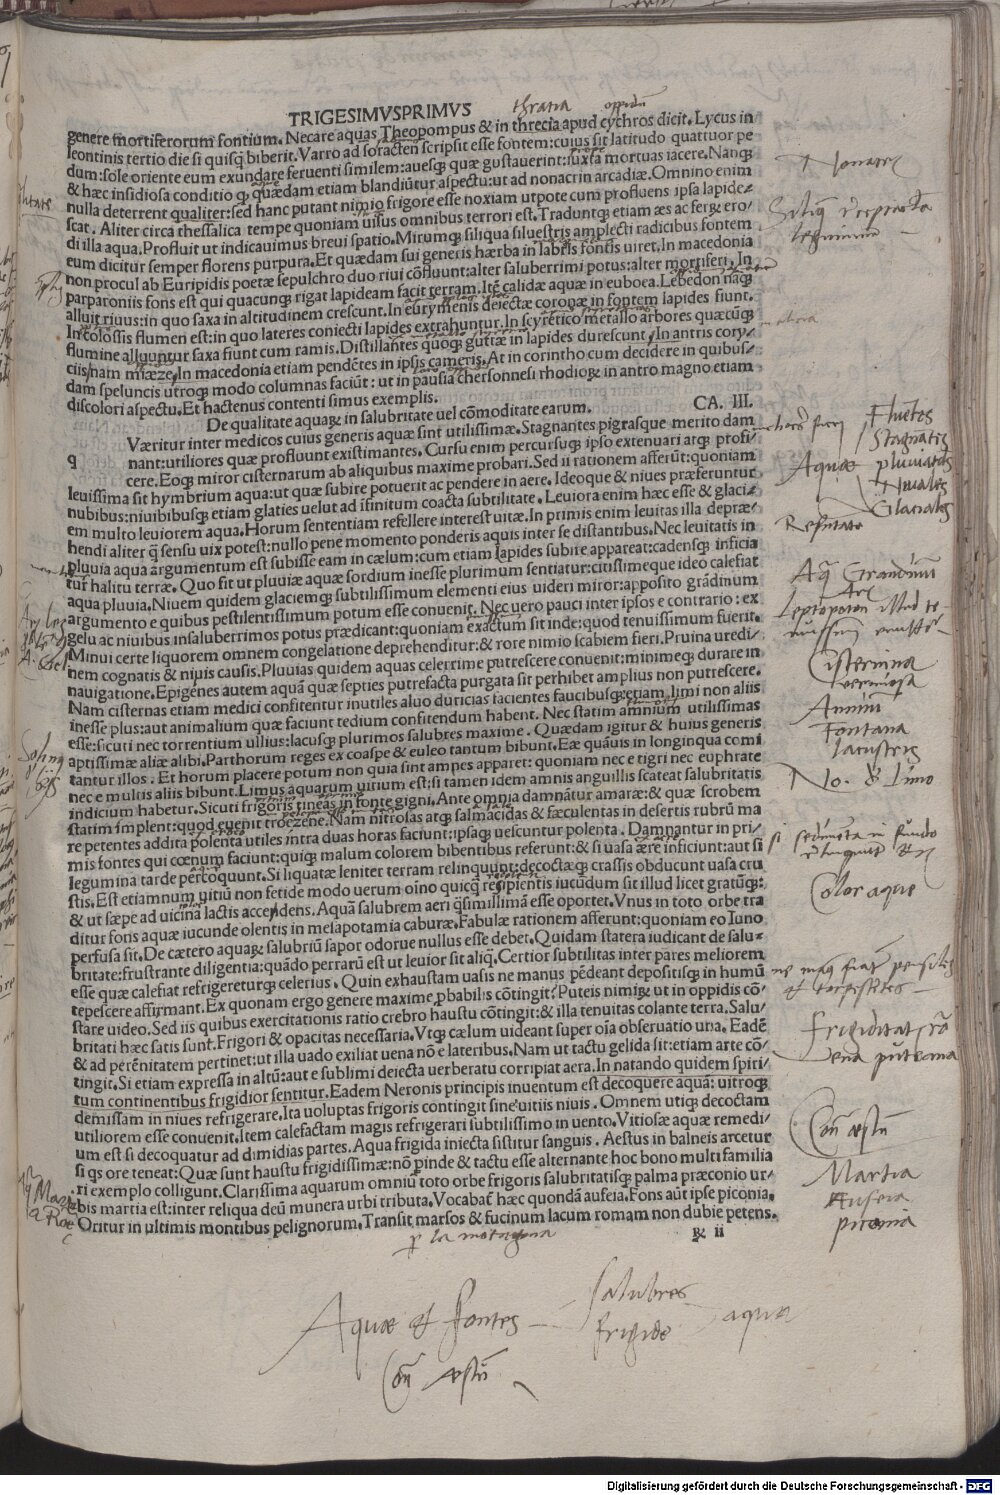 TRIGESIMVSPRIMVS
thratia oppidū
genere mortiferorum fontium. Necare aquas Theopompus & in threcia apud cychros dicit. Lycus in
leontinis tertio die si quisq̄ biberit. Varro ad soracten scripsit esse fontem: cuius sit latitudo quattuor pe
dum: sole oriente eum exundare feruenti similem: auesq; quæ gustauerint: iuxta mortuas iacere. Nanq;
& hæc insidiosa conditio q̨ quædam etiam blandiūtur aspectu: ut ad nonacrin arcadiæ. Omnino enim
nulla deterrent qualiter: sed hanc putant nimio frigore esse noxiam utpote cum profluens ipsa lapide/
scat. Aliter circa thessalica tempe quoniam uisus omnibus terrori est. Traduntq; etiam æs ac ferꝝ ero/
di illa aqua. Profluit ut indicauimus breui spatio. Mirumq; siliqua siluestris amplecti radicibus fontem
eum dicitur semper florens purpura. Et quædam sui generis hærba in labris fontis uiret. In macedonia
non procul ab Euripidis poetæ sepulchro duo riui cōfluunt: alter saluberrimi potus: alter mortiferi. In
parparoniis fons est qui quacunq; rigat lapideam facit terram. Itē calidæ aquæ in euboea. Lebedon naq̄;
alluit riuus: in quo saxa in altitudinem crescunt. In eurymenis deiectæ coronæ in fontem lapides fiunt.
In colossis flumen est: in quo lateres coniecti lapides extrahuntur. In scyretico metallo arbores quæcūq;
flumine alluuntur saxa fiunt cum ramis. Distillantes quoq; guttæ in lapides durescunt. In antris cory/
ciis/nam miæze. In macedonia etiam pendētes in ipsis cameris. At in corintho cum decidere in quibus/
dam speluncis utroq; modo columnas faciūt: ut in pausia chersonnesi rhodioꝝ in antro magno etiam
discolori aspectu. Et hactenus contenti simus exemplis.
De qualitate aquaꝝ in salubritate uel cōmoditate earum. CA. III.
q Væritur inter medicos cuius generis aquæ sint utilissimæ. Stagnantes pigrasque merito dam
nant: utiliores quæ profluunt existimantes. Cursu enim percursuq; ipso extenuari atq; profi/
cere. Eoq; miror cisternarum ab aliquibus maxime probari. Sed ii rationem afferūt: quoniam
leuissima sit hymbrium aqua: ut quæ subire potuerit ac pendere in aere. Ideoque & niues præferuntur
nubibus: niuibibusq; etiam glaties uelut ad īfinitum coacta subtilitate. Leuiora enim hæc esse & glaci/
em multo leuiorem aqua. Horum sententiam refellere interest uitæ. In primis enim leuitas illa depræ/
hendi aliter q̄ sensu uix potest: nullo pene momento ponderis aquis inter se distantibus. Nec leuitatis in
pluuia aqua argumentum est subisse eam in cælum: cum etiam lapides subire appareat: cadensq; inficia
tur halitu terræ. Quo fit ut pluuiæ aquæ sordium inesse plurimum sentiatur: citissimeque ideo calefiat
aqua pluuia. Niuem quidem glaciemq; subtilissimum elementi eius uideri miror: apposito grādinum
argumento e quibus pestilentissimum potum esse conuenit. Nec uero pauci inter ipsos e contrario: ex
gelu ac niuibus insaluberrimos potus prædicant: quoniam exactum sit inde: quod tenuissimum fuerit.
Minui certe liquorem omnem congelatione deprehenditur: & rore nimio scabiem fieri. Pruina uredi/
nem cognatis & niuis causis. Pluuias quidem aquas celerrime putrescere conuenit: minimeq; durare in
nauigatione. Epigenes autem aquā quæ septies putrefacta purgata sit perhibet amplius non putrescere.
Nam cisternas etiam medici confitentur inutiles aluo duricias facientes faucibusq;: etiam limi non aliis
inesse plus: aut animalium quæ faciunt tedium confitendum habent. Nec statim amnium utilissimas
esse: sicuti nec torrentium ullius: lacusq; plurimos salubres maxime. Quædam igitur & huius generis
aptissimæ aliæ alibi. Parthorum reges ex coaspe & euleo tantum bibunt. Eæ quāuis in longinqua comi
tantur illos. Et horum placere potum non quia sint ampes apparet: quoniam nec e tigri nec euphrate
nec e multis aliis bibunt. Limus aquarum uitium est: si tamen idem amnis anguillis scateat salubritatis
indicium habetur. Sicuti frigoris tineas in fonte gigni. Ante omnia damnātur amaræ: & quæ scrobem
statim implent: quod euenit troezene. Nam nitrosas atq; salmacidas & fæculentas in desertis rubrū ma
re petentes addita polenta utiles intra duas horas faciunt: ipsaq; uescuntur polenta. Damnantur in pri/
mis fontes qui cœnum faciunt: quiq; malum colorem bibentibus referunt: & si uasa ærere inficiunt: aut si
legumina tarde percoquunt. Si liquatæ leniter terram relinquunt: decoctæq; crassis obducunt uasa cru
stis. Est etiamnum uitiū non fetide modo uerum oīno quicq̄ respipientis iucūdum sit illud licet gratūq;:
& ut sæpe ad uicina lactis accedens. Aquā salubrem aeri q̄simillimā esse oportet. Vnus in toto orbe tra
ditur fons aquæ iucunde olentis in mesapotamia caburæ. Fabulæ rationem afferunt: quoniam eo Iuno
perfusa sit. De cætero aquaꝝ salubriū sapor odorue nullus esse debet. Quidam statera iudicant de salu/
britate: frustrante diligentia: quādo perrarū est ut leuior sit aliq̄. Certior subtilitas inter pares meliorem
esse quæ calefiat refrigereturq; celerius. Quin exhaustam uasis ne manus pēdeant depositisq; in humū
tepescere affirmant. Ex quonam ergo genere maxime ꝓbabilis cōtingit? Puteis nimiꝝ ut in oppidis cō/
stare uideo. Sed iis quibus exercitationis ratio crebro haustu cōtingit: & illa tenuitas colante terra. Salu/
britati hæc satis sunt. Frigori & opacitas necessaria. Vtq; cælum uideant super oīa obseruatio una. Eadē
& ad perēnitatem pertinet: ut illa uado exiliat uena nō e lateribus. Nam ut tactu gelida sit: etiam arte cō/
tingit. Si etiam expressa in altū: aut e sublimi deiecta uerberatu corripiat aera. In natando quidem spiri/
tum continentibus frigidior sentitur. Eadem Neronis principis inuentum est decoquere aquā: uitroq;
demissam in niues refrigerare. Ita uoluptas frigoris contingit sine uitiis niuis. Omnem utiq; decoctam
utiliorem esse conuenit. Item calefactam magis refrigerari subtilissimo inuento. Vitiosæ aquæ remedi/
um est si decoquatur ad dimidias partes. Aqua frigida iniecta sistitur sanguis. Aestus in balneis arcetur
si qs ore teneat: Quæ sunt haustu frigidissimæ: nō ꝑinde & tactu esse alternante hoc bono multi familia
ri exemplo colligunt. Clarissima aquarum omniū toto orbe frigoris salubritatisq; palma præconio ur/
bis martia est: inter reliqua deū munera urbi tributa. Vocabat̄ hæc quondā aufeia. Fons aūt ipse piconia.
Oritur in ultimis montibus pelignorum. Transit marsos & fucinum lacum romam non dubie petens.
& ii
Nonacris
Fluētes
Stagnatis
Aquæ pluuiatilis
Niualis
Glacialis
Refutatæ
Aq̄ Grandinū
Cisternina
verminosa
Amniū
Fontana
lacustris
No. & Limo
si sedimēta in fundo
Color aque
Frigiditat
vena puteana
Con æstū
Martia
Aufeia
piconia
Aquæ et fontes – salubres
frigide aqua
Con æstū
Digitalisierung gefördert durch die Deutsche Forschungsgemeinschaft - DFG